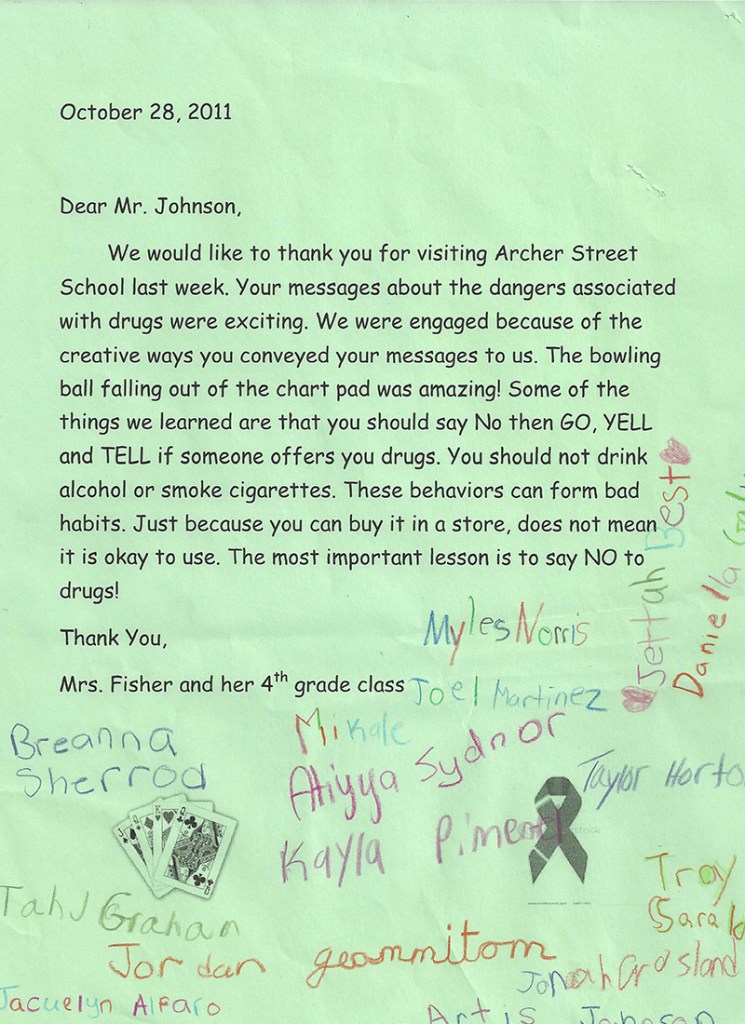 October 28, 2011
Dear Mr. Johnson,
We would like to thank you for visiting Archer Street
School last week. Your messages about the dangers associated
with drugs were exciting. We were engaged because of the
creative ways you conveyed your messages to us. The bowling
ball falling out of the chart pad was amazing! Some of the
things we learned are that you should say No then GO, YELL
and TELL if someone offers you drugs. You should not drink
alcohol or smoke cigarettes. These behaviors can form bad
habits. Just because you can buy it in a store, does not mean
it is okay to use. The most important lesson is to say NO to
drugs!
Thank You,
Mrs. Fisher and her 4th grade class
Jettah Best
Daniella
Myles Norris
Joel Martinez
Mikale
Breanna
Sherrod
Atiyya Sydnor
Taylor Horto
Kayla Pimentel
Troy
Tahj Graham
Jordan
Jonah Crosland
Jacuelyn Alfaro
Artis Johnson